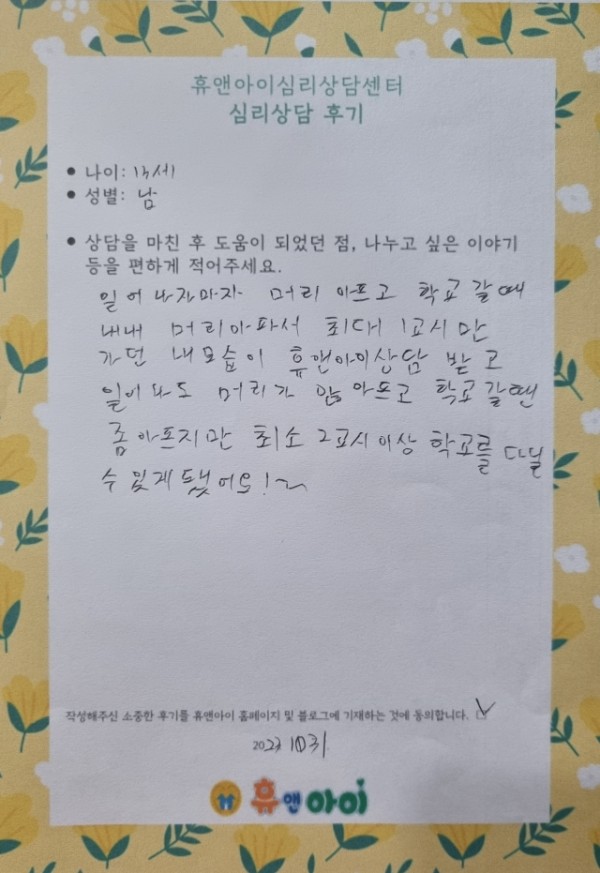 휴앤아이심리상담센터
심리상담 후기
● 나이: 13세
● 성별: 남
● 상담을 마친 후 도움이 되었던 점, 나누고 싶은 이야기
등을 편하게 적어주세요.
일어나자마자 머리 아프고 학교 갈때
내내 머리아파서 최대 1교시만
가던 내모습이 휴앤아이상담 받고
일어나도 머리가 안아프고 학교갈땐
좀아프지만 최소 2교시 이상 학교를 다닐
수 있게 됐어요!~
작성해주신 소중한 후기를 휴앤아이 홈페이지 및 블로그에 기재하는 것에 동의합니다. ☑
2023 10 31.
휴앤아이